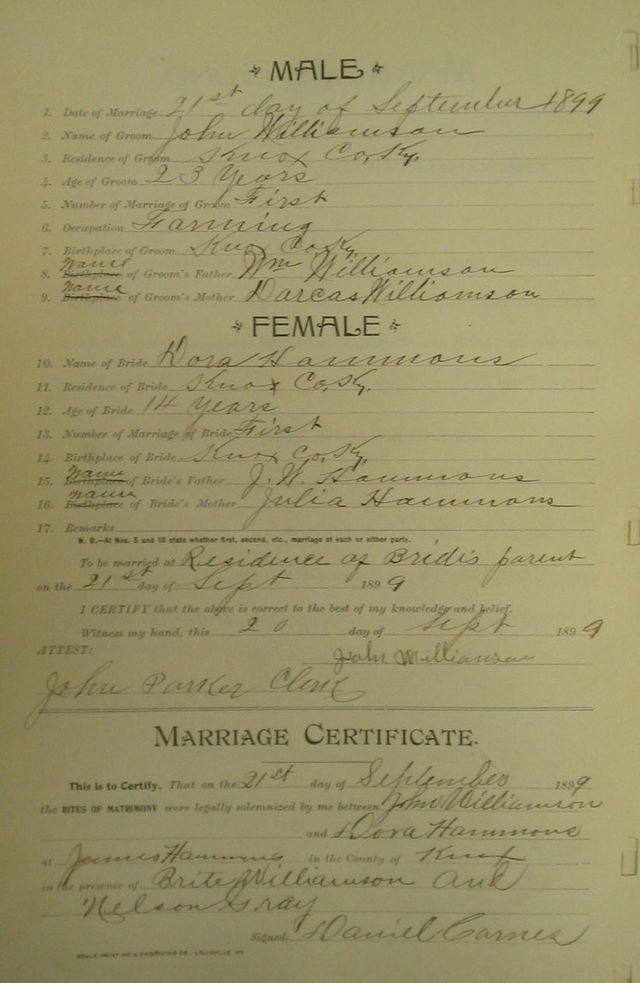 MALE
1. Date of Marriage 21st day of September 1899
2. Name of Groom John Williamson
3. Residence of Groom Knox Co, Ky.
4. Age of Groom 23 Years
5. Number of Marriage of Groom First
6. Occupation Farming
7. Birthplace of Groom Knox Co Ky
Name
8. Birthplace of Groom's Father Wm Williamson
Name
9. Birthplace of Groom's Mother Darcas Williamson
FEMALE
10. Name of Bride Dora Hammons
11. Residence of Bride Knox Co, Ky.
12. Age of Bride 14 Years
13. Number of Marriage of Bride First
14. Birthplace of Bride Knox Co, Ky.
Name
15. Birthplace of Bride's Father J. W. Hammons
Name
16. Birthplace of Bride's Mother Julia Hammons
17. Remarks
N. B.—At Nos. 5 and 13 state whether first, second, etc., marriage of each or either party.
To be married at Residence of Bride's parent
on the 21st day of Sept 1899
I CERTIFY that the above is correct to the best of my knowledge and belief.
Witness my hand, this 20 day of Sept 1899
ATTEST: John Williamson
John Parker Clerk
MARRIAGE CERTIFICATE.
This is to Certify, That on the 21st day of September 1899
the RITES OF MATRIMONY were legally solemnized by me between John Williamson
and Dora Hammons
at James Hammons in the County of Knox
in the presence of Brite Williamson and
Nelson Gray
Signed: Daniel Carnes